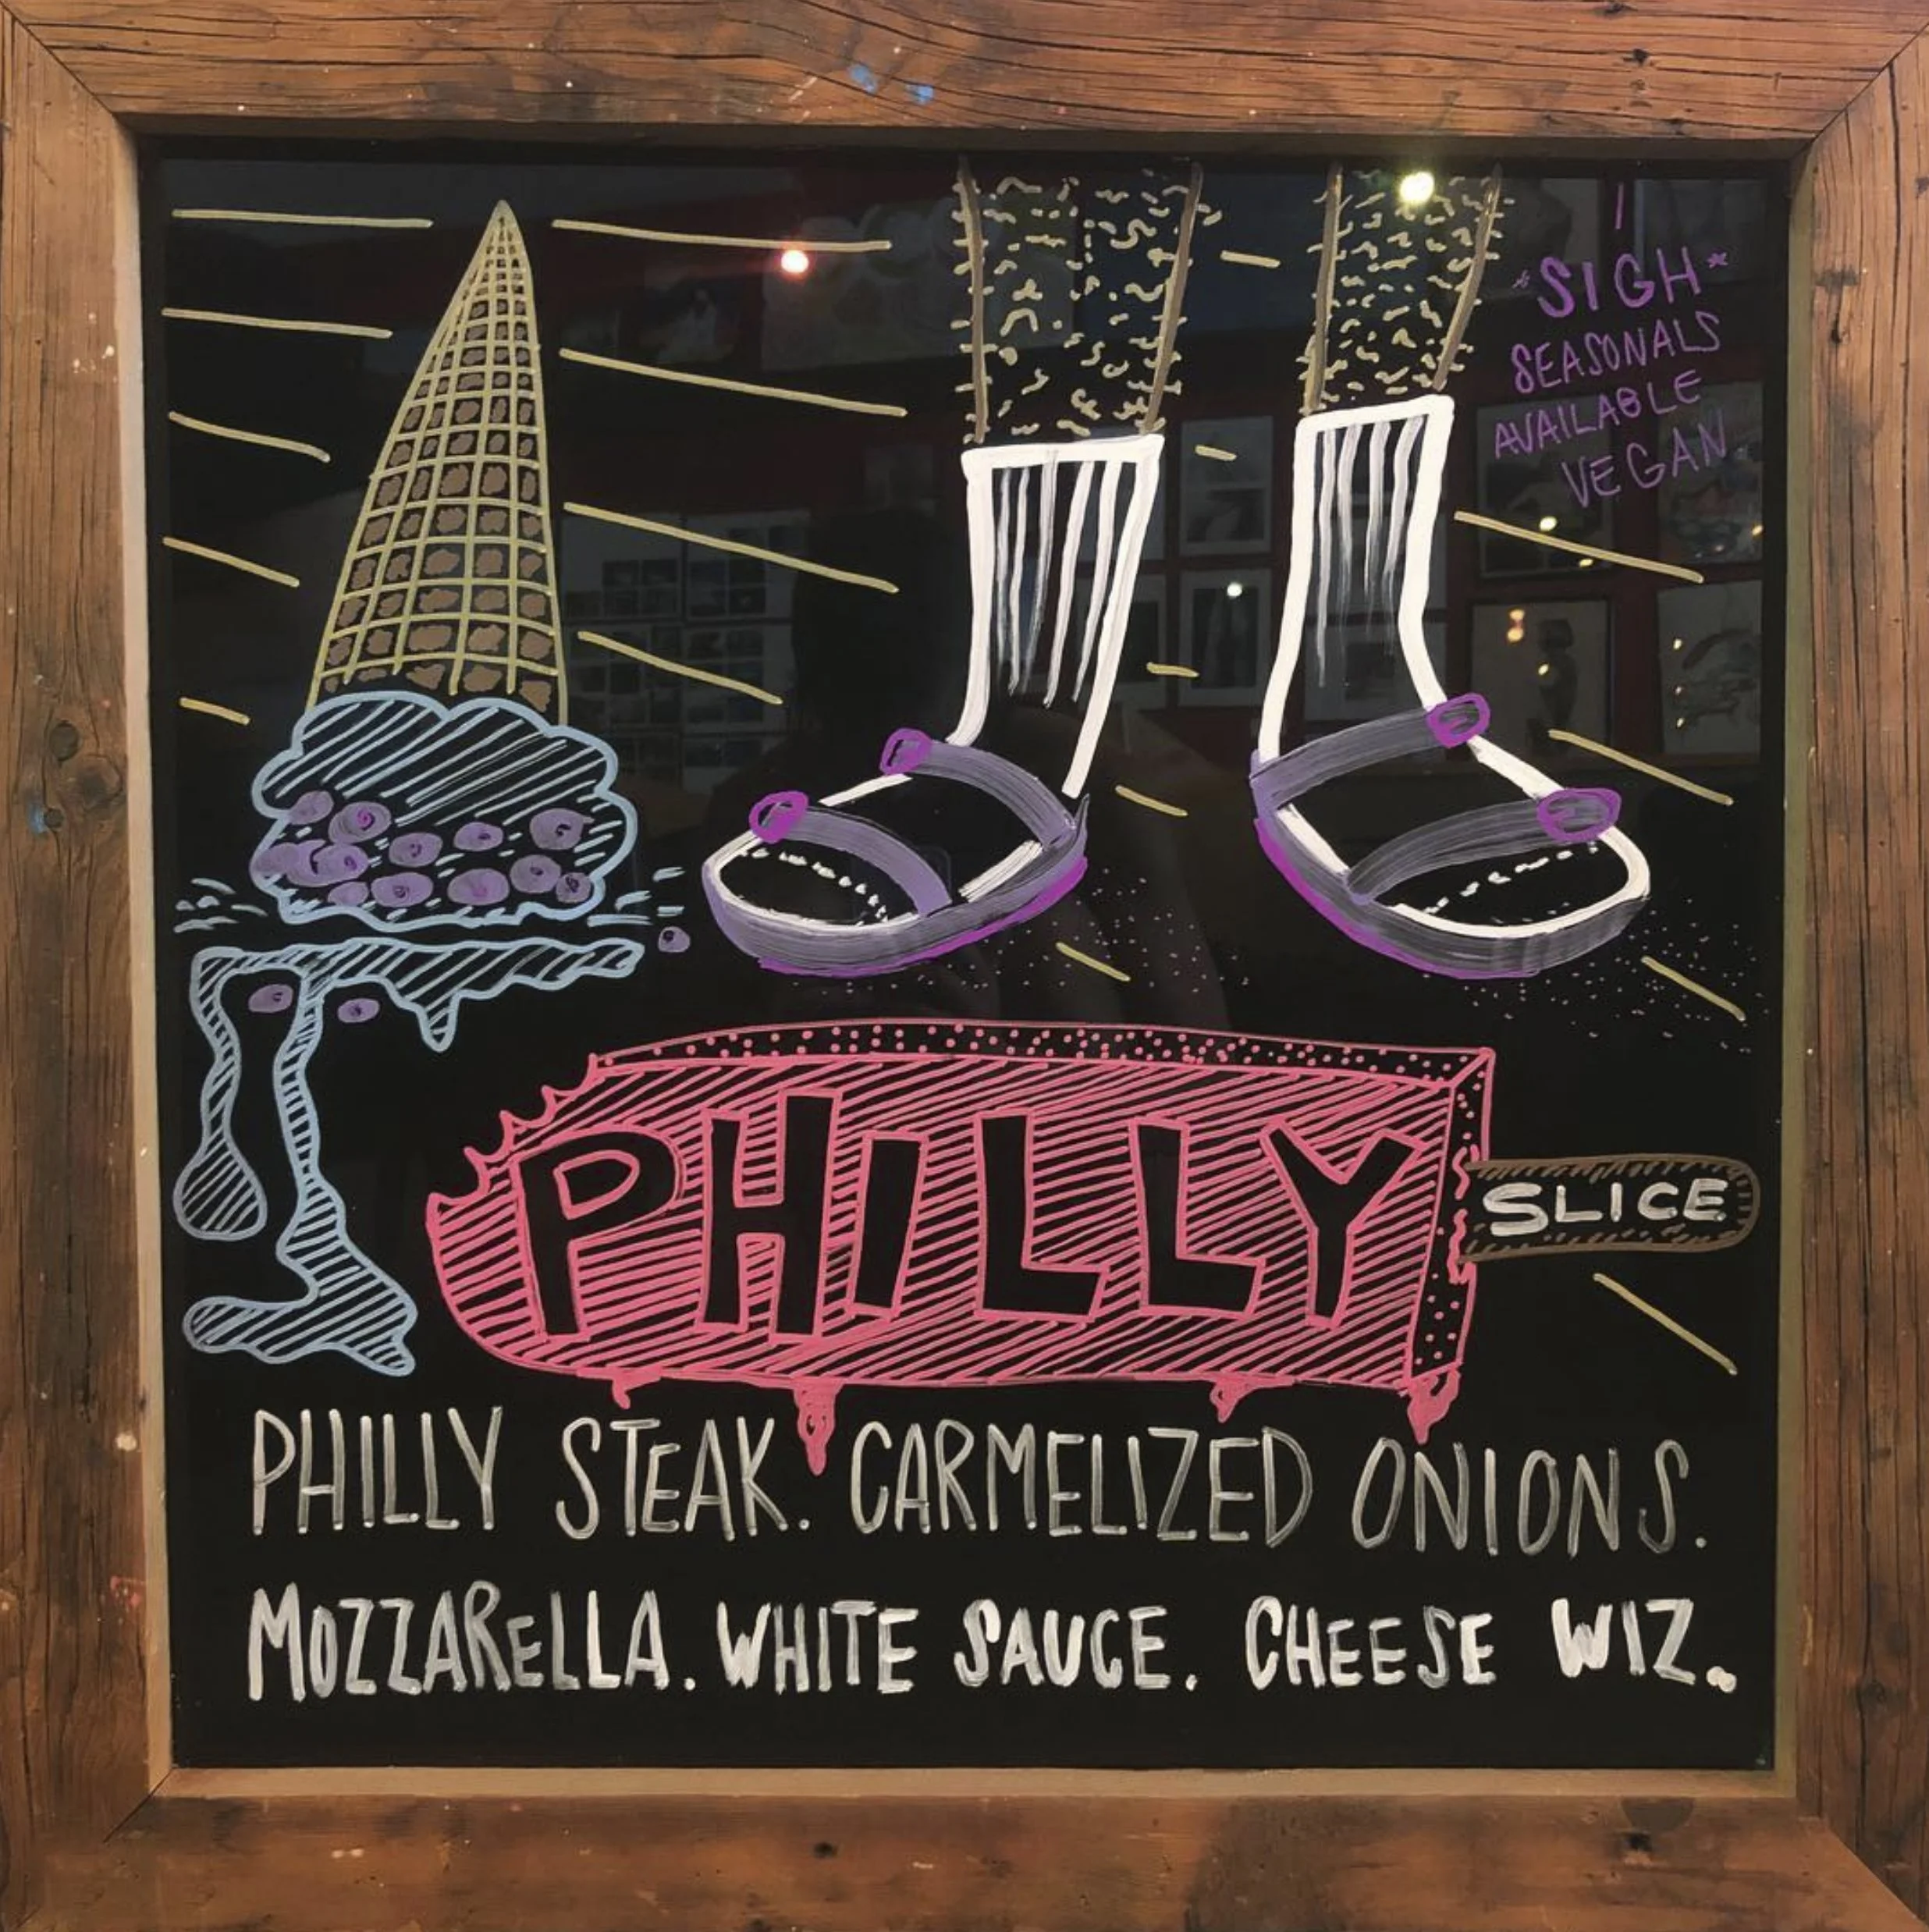 *SIGH*
SEASONALS
AVAILABLE
VEGAN
PHILLY
SLICE
PHILLY STEAK. CARMELIZED ONIONS.
MOZZARELLA. WHITE SAUCE. CHEESE WIZ.